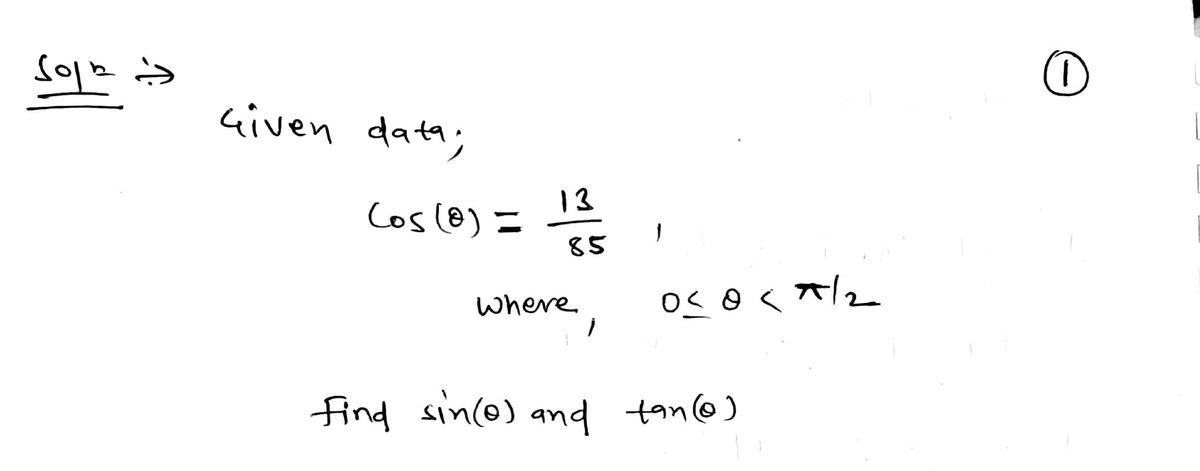 Soln ⇒
①
Given data;
Cos(θ) = 13/85 ,
where, 0 ≤ θ < π/2
find sin(θ) and tan(θ)